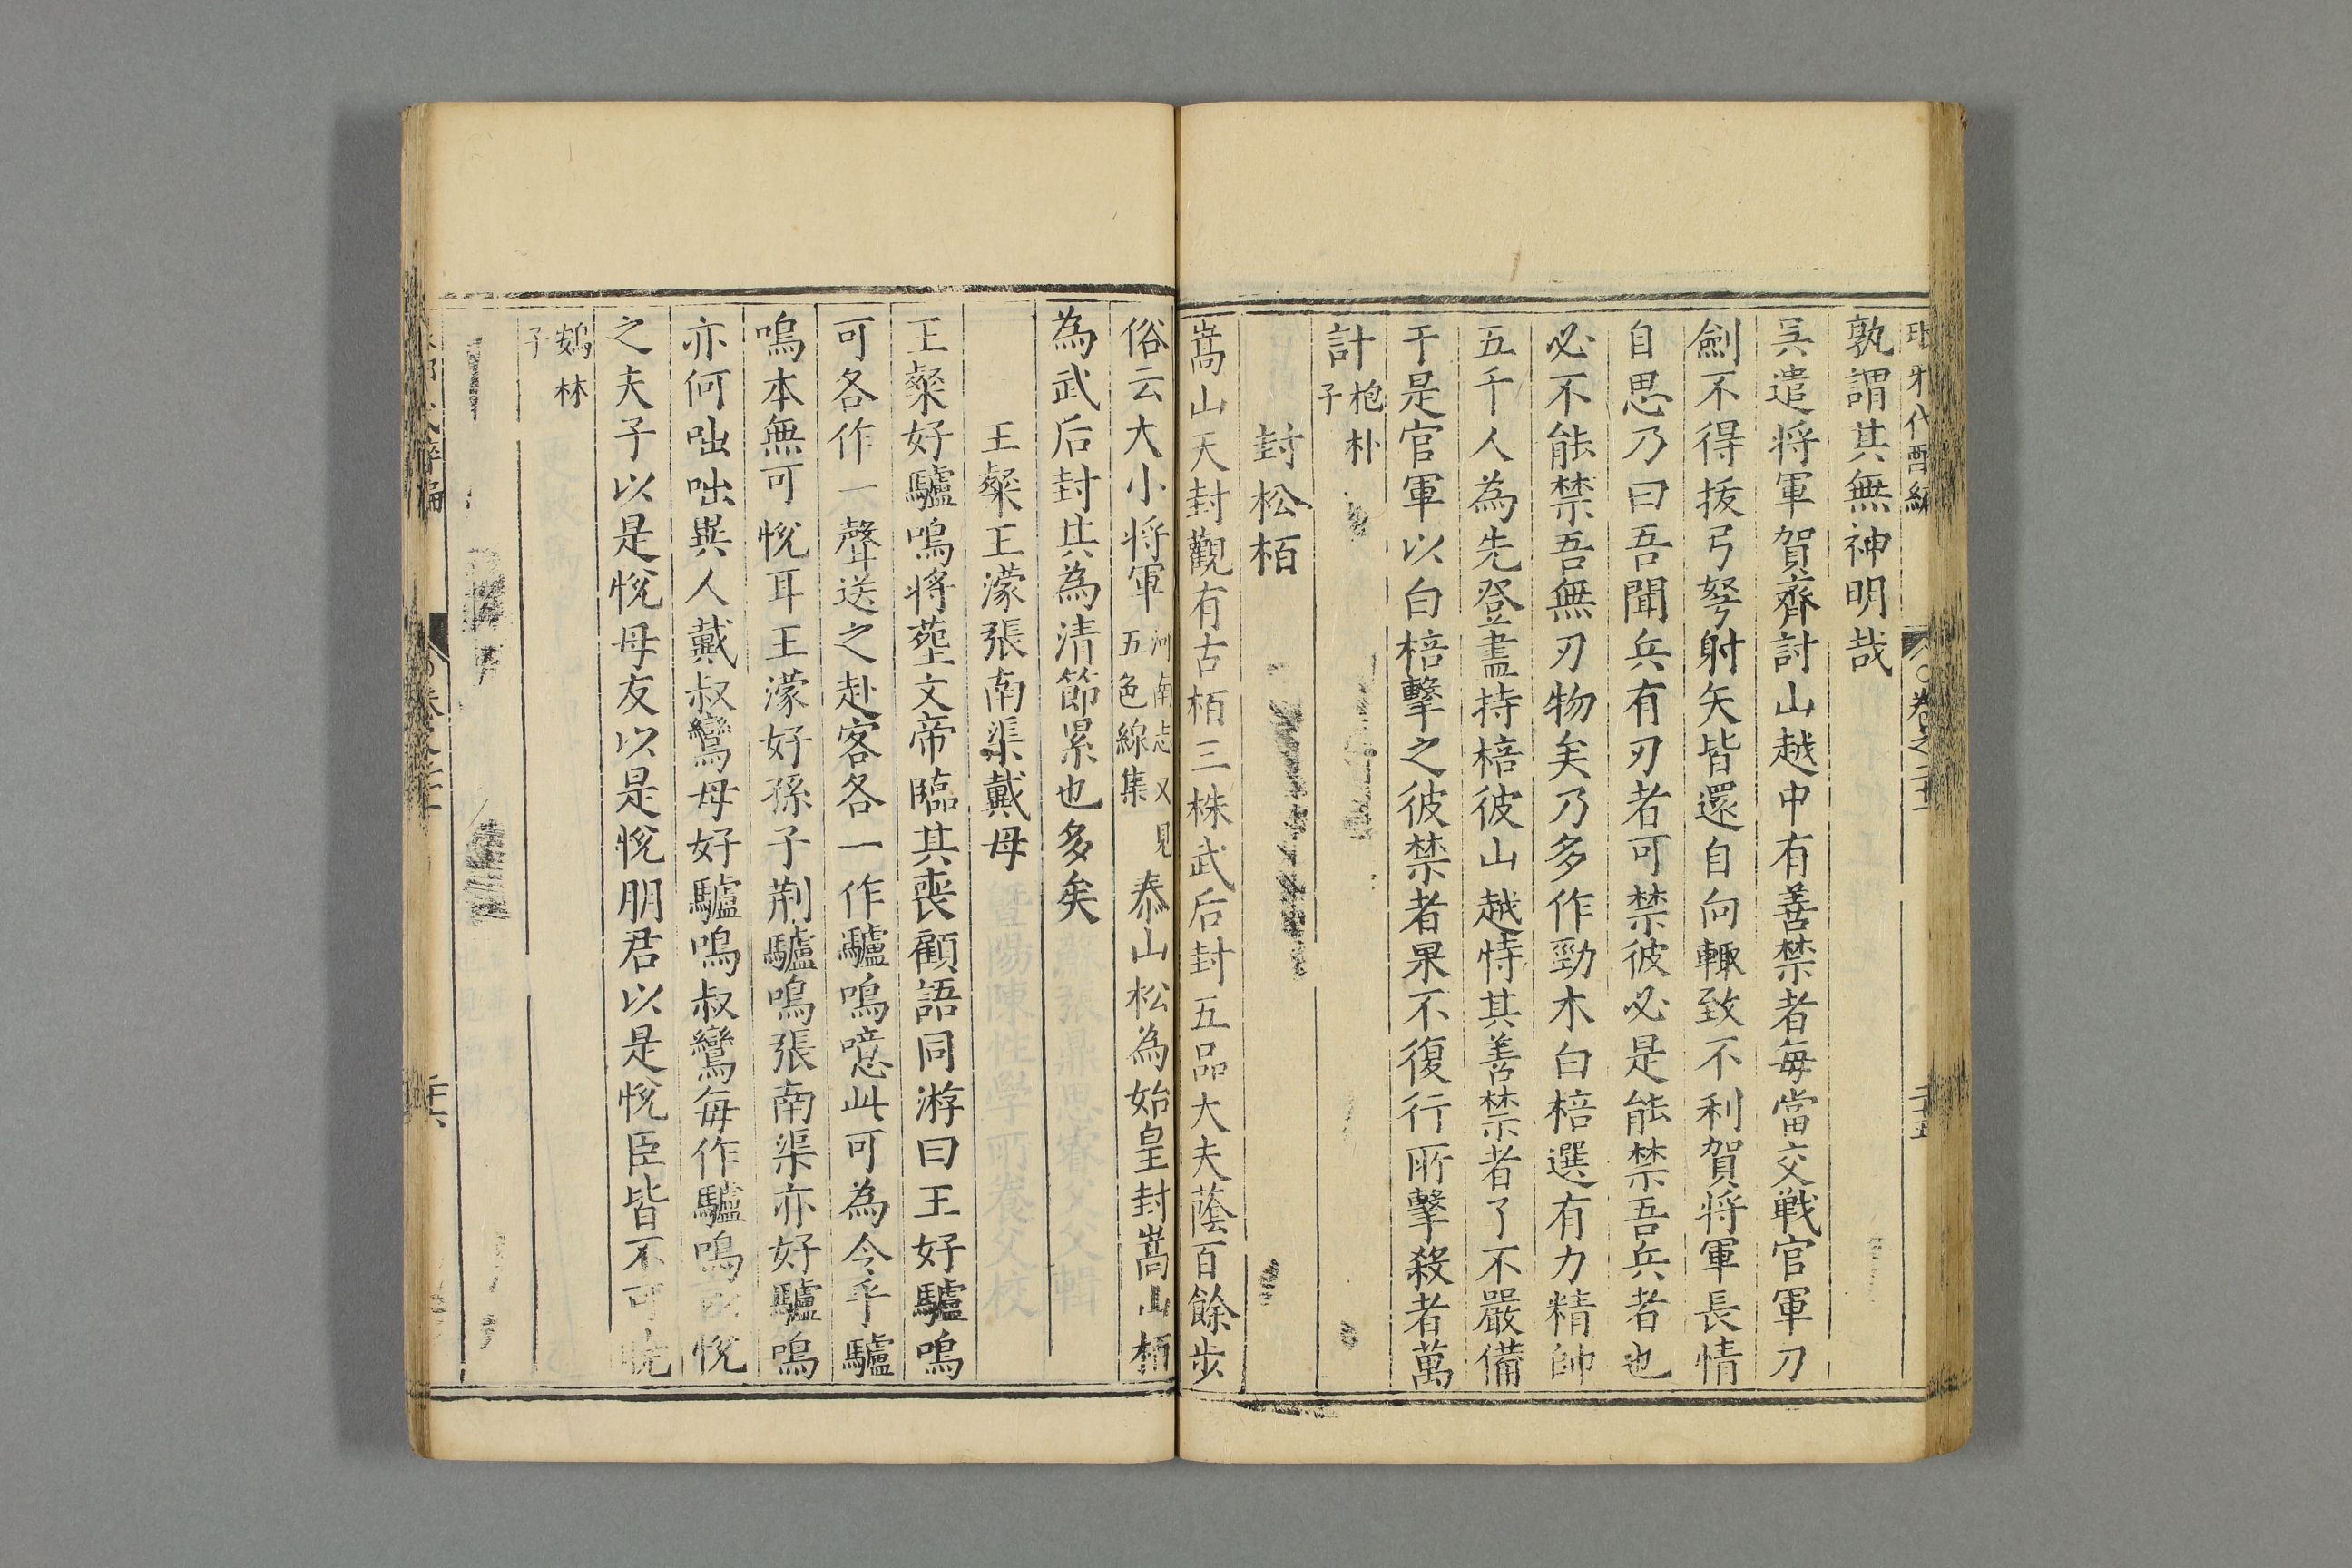 琅邪代醉編 卷之二十 二十五
孰謂其無神明哉
吳遣将軍賀齊討山越中有善禁者每當交戰官軍刀
劍不得拔弓弩射矢皆還自向輙致不利賀將軍長情
自思乃曰吾聞兵有刃者可禁彼必是能禁吾兵者也
必不能禁吾無刃物矣乃多作勁木白棓選有力精帥
五千人為先登盡持棓彼山越恃其善禁者了不嚴備
于是官軍以白棓擊之彼禁者果不復行所擊殺者萬
計抱朴子
封松栢
嵩山天封觀有古栢三株武后封五品大夫蔭百餘步
俗云大小将軍河南志又見五色線集 泰山松為始皇封嵩山栢
為武后封其為清節累也多矣
王粲王濛張南渠戴母
王粲好驢鳴将葬文帝臨其喪顧語同游曰王好驢鳴
可各作一聲送之赴客各一作驢鳴噫此可為令乎驢
鳴本無可悅耳王濛好孫子荆驢鳴張南渠亦好驢鳴
亦何咄咄異人戴叔鸞母好驢鳴叔鸞每作驢鳴悅
之夫子以是悅母友以是悅朋君以是悅臣皆不可曉
鵷林子
二十六